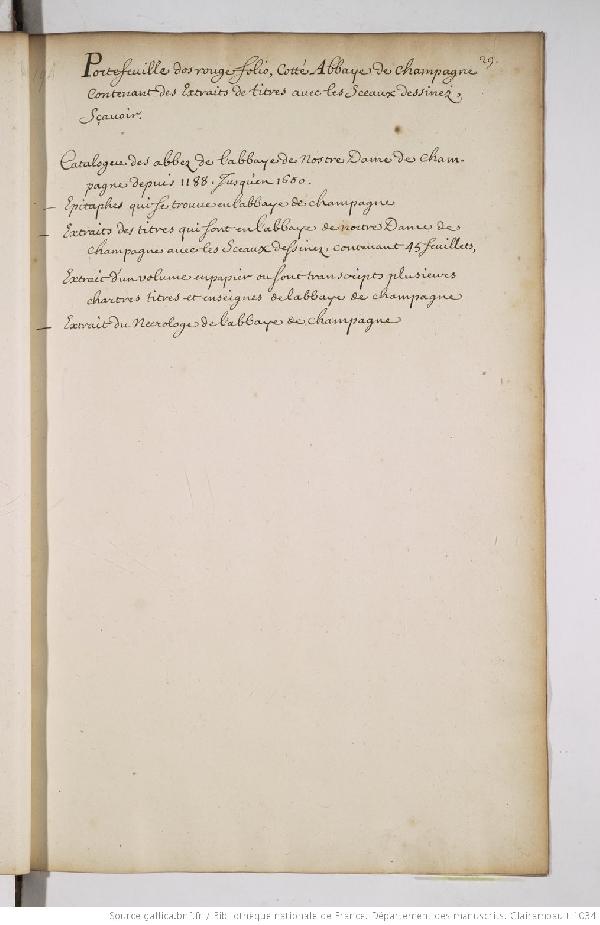 29.
Portefeuille dos rouge folio, Cotté Abbaye de Champagne
Contenant des Extraits de titres avec les Sceaux dessinez,
Sçavoir.
Catalogue des abbez de l'abbaye de Nostre Dame de Cham-
pagne depuis 1188. Jusqu'en 1600.
Epitaphes qui se trouve en l'abbaye de champagne
Extraits des titres qui sont en l'abbaye de nostre Dame de
champagne avec les Sceaux dessinez, contenant 45 feuillets,
Extrait d'un volume en papier ou sont transcripts plusieurs
chartres titres et enseignes de l'abbaye de champagne
Extrait du Necrologe de l'abbaye de champagne
Source gallica.bnf.fr / Bibliothèque nationale de France. Département des manuscrits. Clairambault 1034